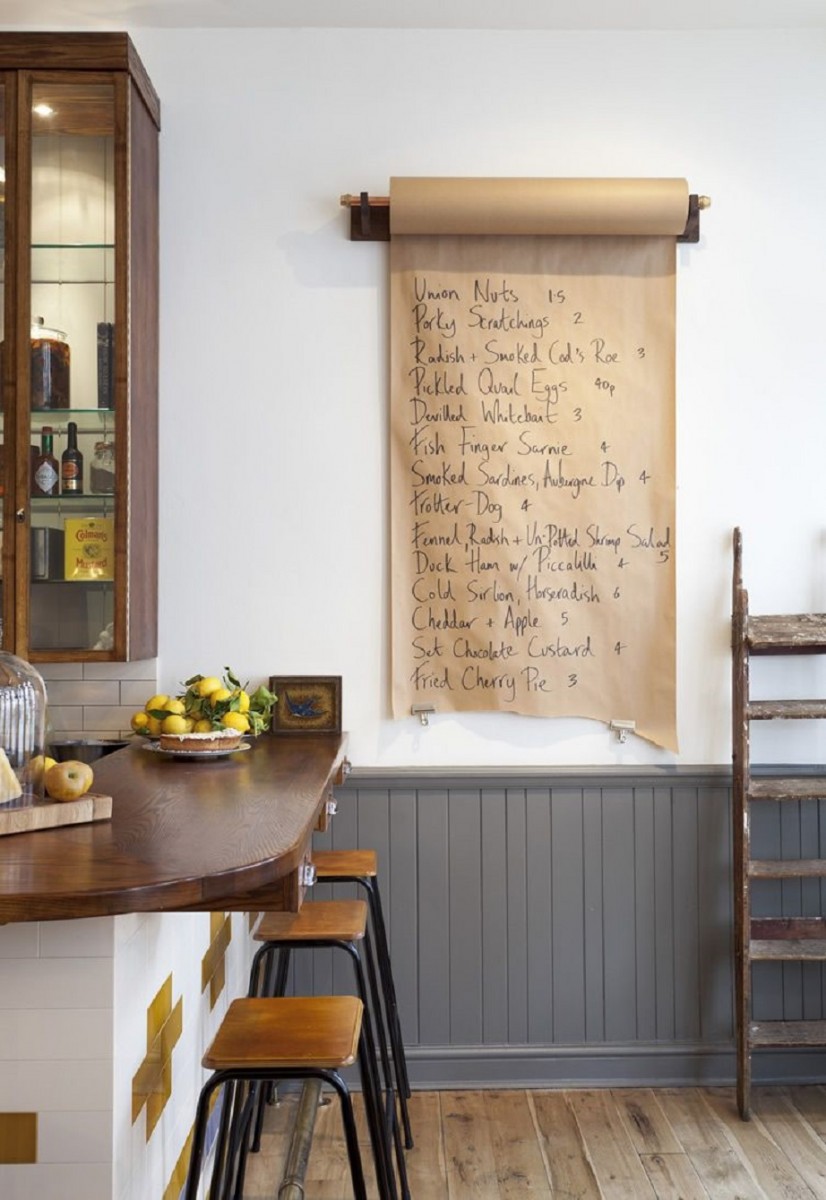 Union Nuts 1.5
Porky Scratchings 2
Radish + Smoked Cod's Roe 3
Pickled Quail Eggs 40p
Devilled Whitebait 3
Fish Finger Sarnie 4
Smoked Sardines, Aubergine Dip 4
Trotter-Dog 4
Fennel, Radish + Un-Potted Shrimp Salad 5
Duck Ham w/ Piccalilli 4
Cold Sirloin, Horseradish 6
Cheddar + Apple 5
Set Chocolate Custard 4
Fried Cherry Pie 3
Colman's
Mustard